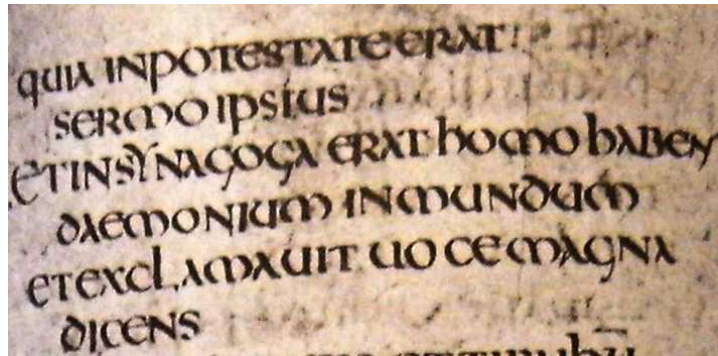 quia inpotestate erat
sermo ipsius
et in synagoga erat homo haben
daemonium inmundum
et exclamauit uoce magna
dicens